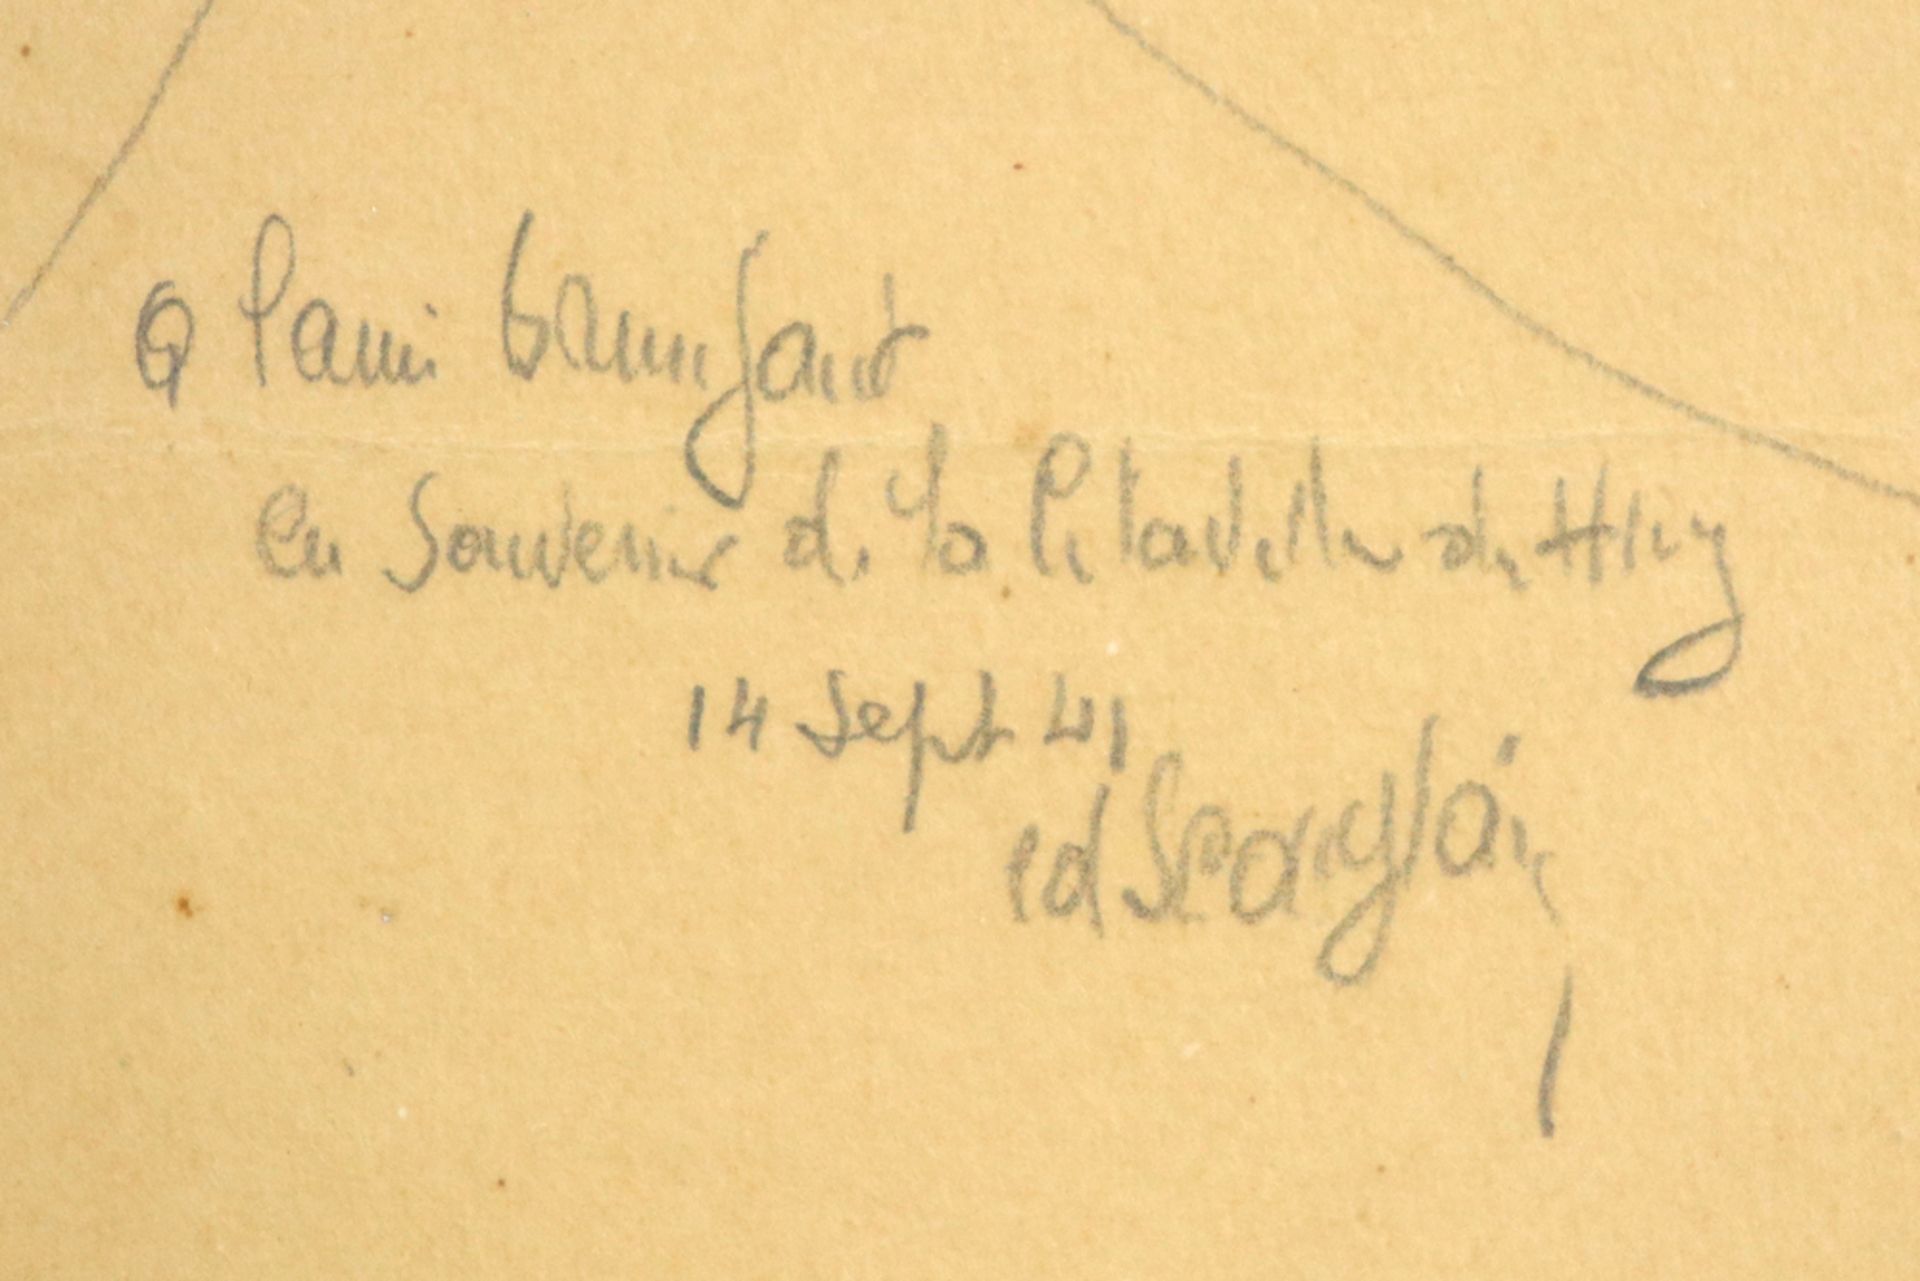 a l'ami
en souvenir de la Citadelle de Huy
14 Sept 41
ed Scauflair